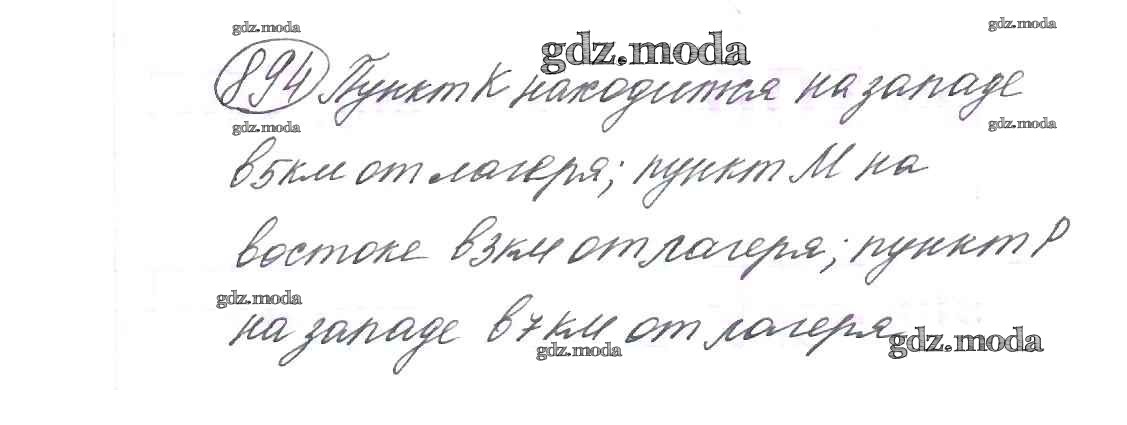 gdz.moda gdz.moda
gdz.moda
894 Пункт К находится на западе
gdz.moda gdz.moda
в 5 км от лагеря; пункт М на
востоке в 3 км от лагеря; пункт Р
gdz.moda
на западе в 7 км от лагеря
gdz.moda gdz.moda